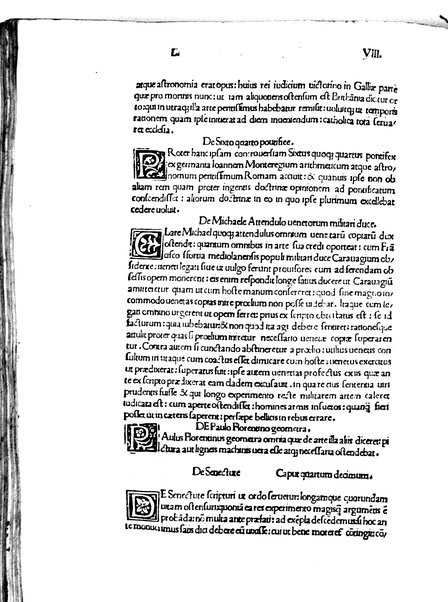 L VIII.
atque astronomia erat opus: huius rei iudicium uictorino in Galliæ parte
quæ pro morinis nunc: ut iam aliquotiens ostensum est Brithánia dicitur or
to: qui in utraq; illa arte peritissimus habebatur remisit: uoluitq; ut temporis
rationem quam ipse inuenerat ad diem inueniendum: catholica tota serua
ret ecclesia.
De Sixto quarto pontifice.
PRoter hanc ipsam controuersiam Sixtus quoq; quartus pontifex
ex germania Ioannem Monteregium arithmeticum atque astro
nomum peritissimum Romam acciuit: & quamuis ipse non ob
aliam rem quam propter ingentis doctrinæ opinionem ad pontificatum
conscendisset: aliorum doctrinæ in eo in quo ipse plurimum excellebat
cedere uoluit.
De Michaele Attendulo uenetorum militari duce.
CLare Michael quoq; attendulus omnium uenetarū copiarū dux
ostendit: quantum omnibus in arte sua credi oporteat: cum Frā
cisco sfortia mediolanensis populi militari duce Carauagium ob
sidente: ueneti legati siue ut uulgo ferunt prouisores cum ad ferendam ob
sessis opem mouerent: eis enim respondit longe satius ducere ut Carauagiū
amitteretur quam ut cum hoste manum consereret: quod sine magno in
commodo uenetas copias inire prœlium non posse uidebat. Itaque cum le
gati omnino urgerent ut opem ferret: prius ex scripto obtestatus est: se id
facturum: quia iubebatur: & non quod ita agi debere senserit: rationesque
attulit propter quas si prœlium miretur necessario uenetæ copiæ superaren
tur. Contra autem si cunctando abstineretur a prœlio: uultus uenetus con
sultum iri: utraque cum coactus esset dimicare cum hoste: uenetus exercitus
ut prædixerat: superatus fuit: ipse autem uenetias profectus eius quæ an
te ex scripto prædixerat eam cladem excusauit. In qua re eius sententia uiri
prudentis fuisse & qui longo experimento recte militarem artem caleret
iudicata est: cum aperte ostendisset: homines armis insuetos: quanq; sieri
posse ut in cæteris saperent: persæpe bellicis in rebus errare.
DE Paulo Florentino geometra.
PAulus Florentinus geometra omnia quæ de arte illa aliis diceret pi
ctura aut ligneis machinis uera esse atq; necessaria ostendebat.
De Senectute Caput quartum decimum.
DE Senectute scripturi ut ordo seruetur: longamque quorundam
uitam ostensuri: quoniā ea res experimento magisq; argumētis ē
probāda: nō multa ante præfati: ad exēpla descēdemus: si hoc an
te monuerimus satis dici debere eū uixisse: cui ut bene moreret cōtingit: cū